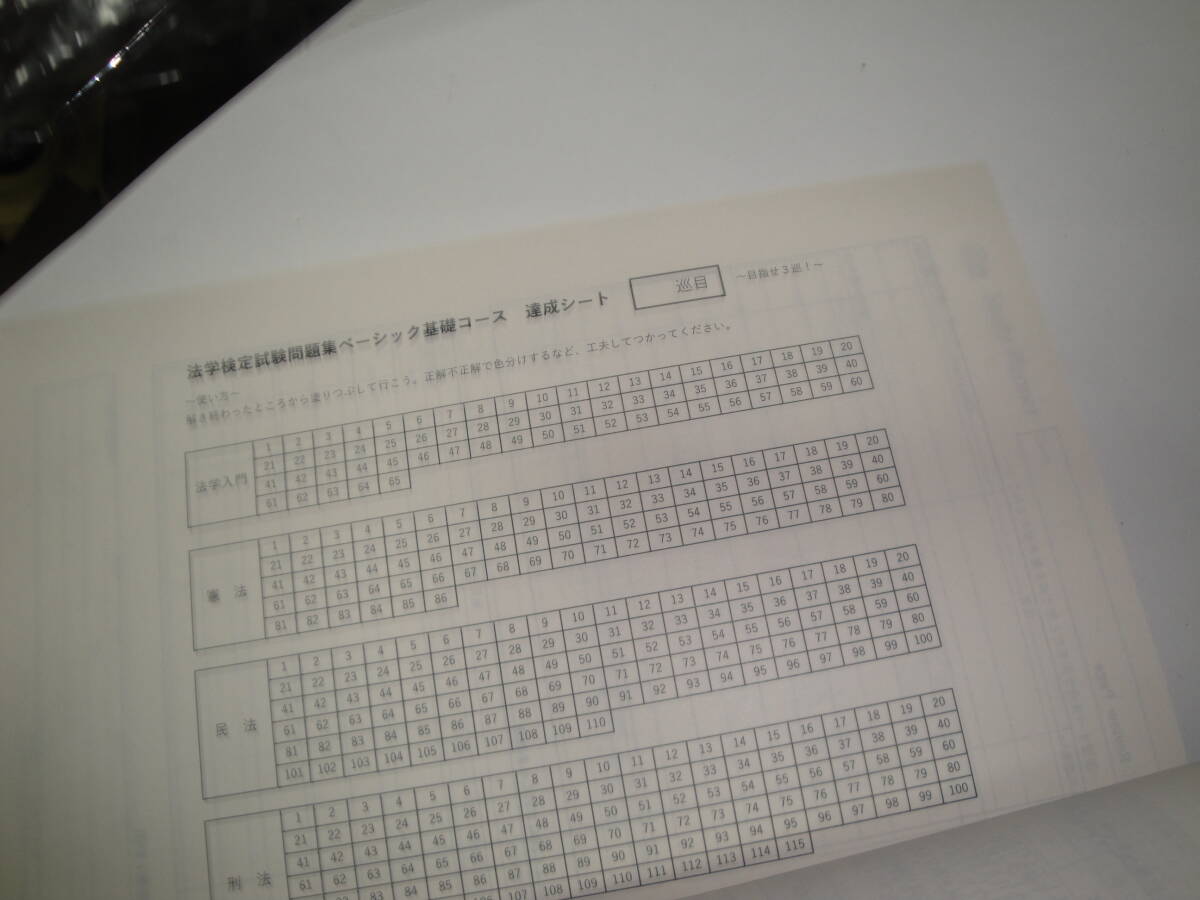 法学検定試験問題集ベーシック基礎コース 達成シート 巡目 ～目指せ３巡！～
～使い方～
解き終わったところから塗りつぶして行こう。正解不正解で色分けするなど、工夫してつかってください。
法学入門
1 2 3 4 5 6 7 8 9 10 11 12 13 14 15 16 17 18 19 20
21 22 23 24 25 26 27 28 29 30 31 32 33 34 35 36 37 38 39 40
41 42 43 44 45 46 47 48 49 50 51 52 53 54 55 56 57 58 59 60
61 62 63 64 65
憲 法
1 2 3 4 5 6 7 8 9 10 11 12 13 14 15 16 17 18 19 20
21 22 23 24 25 26 27 28 29 30 31 32 33 34 35 36 37 38 39 40
41 42 43 44 45 46 47 48 49 50 51 52 53 54 55 56 57 58 59 60
61 62 63 64 65 66 67 68 69 70 71 72 73 74 75 76 77 78 79 80
81 82 83 84 85 86
民 法
1 2 3 4 5 6 7 8 9 10 11 12 13 14 15 16 17 18 19 20
21 22 23 24 25 26 27 28 29 30 31 32 33 34 35 36 37 38 39 40
41 42 43 44 45 46 47 48 49 50 51 52 53 54 55 56 57 58 59 60
61 62 63 64 65 66 67 68 69 70 71 72 73 74 75 76 77 78 79 80
81 82 83 84 85 86 87 88 89 90 91 92 93 94 95 96 97 98 99 100
101 102 103 104 105 106 107 108 109 110
刑 法
1 2 3 4 5 6 7 8 9 10 11 12 13 14 15 16 17 18 19 20
21 22 23 24 25 26 27 28 29 30 31 32 33 34 35 36 37 38 39 40
41 42 43 44 45 46 47 48 49 50 51 52 53 54 55 56 57 58 59 60
61 62 63 64 65 66 67 68 69 70 71 72 73 74 75 76 77 78 79 80
83 84 85 86 87 88 89 90 91 92 93 94 95 96 97 98 99 100
107 108 109 110 111 112 113 114 115